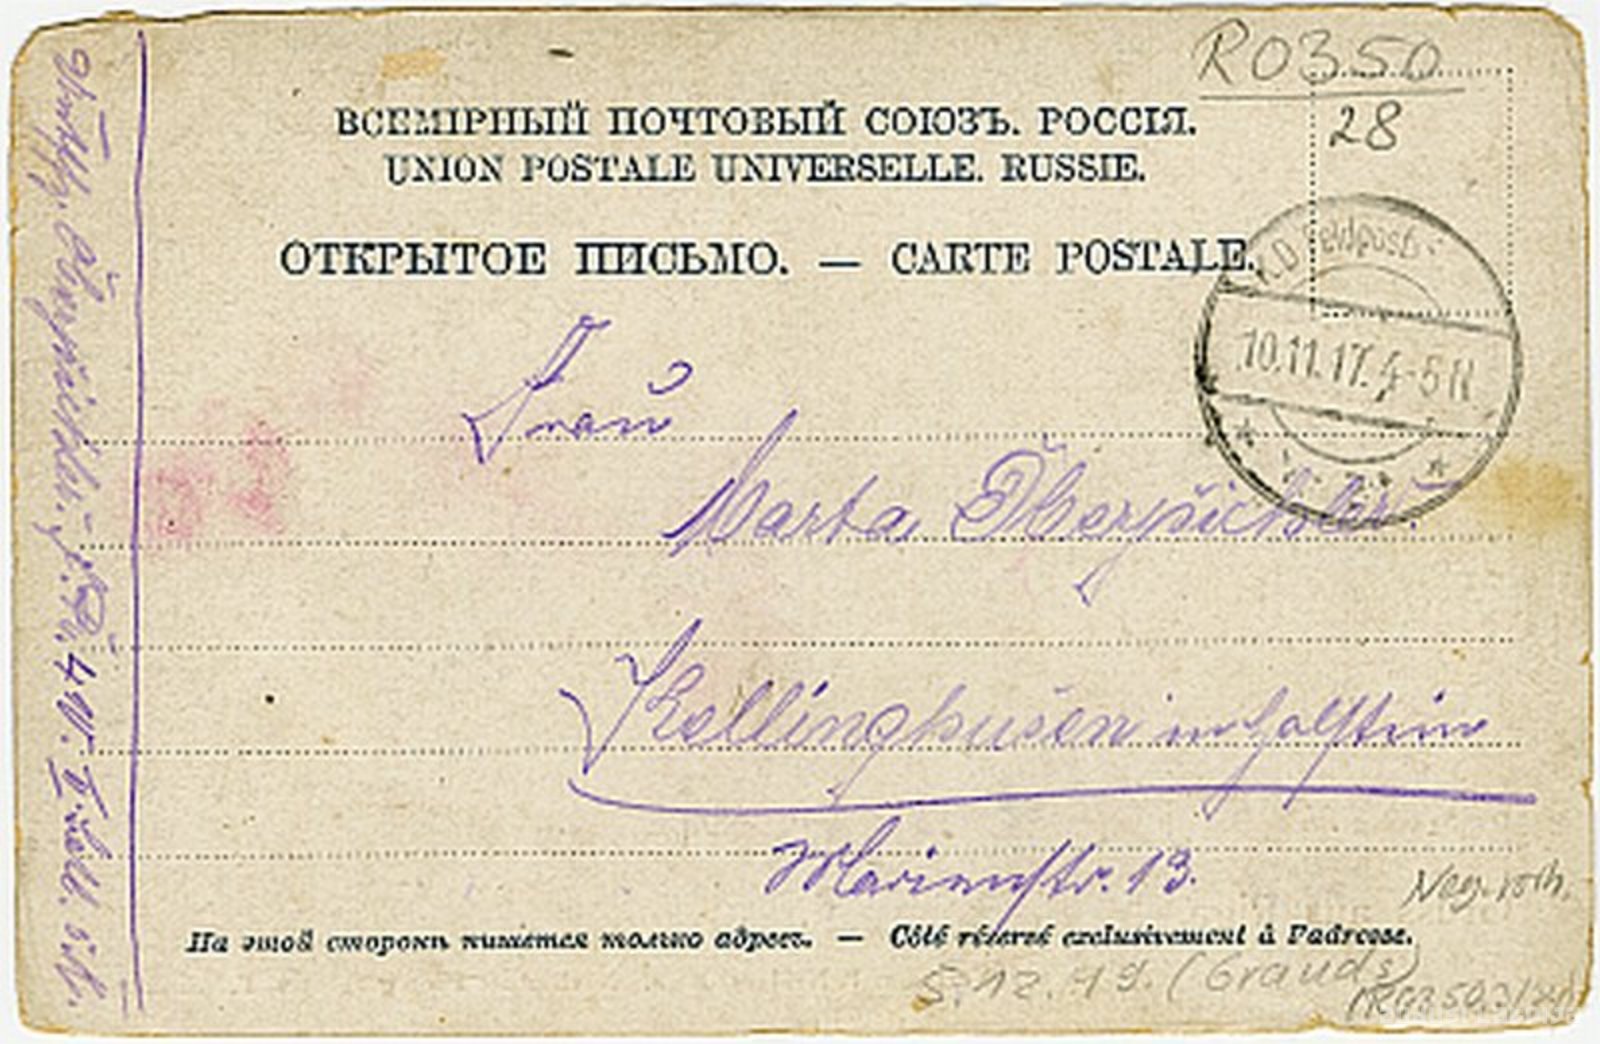 R0350
28
ВСЕМІРНЫЙ ПОЧТОВЫЙ СОЮЗЪ. РОССІЯ.
UNION POSTALE UNIVERSELLE. RUSSIE.
ОТКРЫТОЕ ПИСЬМО. — CARTE POSTALE.
K.D. Feldpost
10.11.17. 4-5 N
Frau
Marta
Kellinghusen in Holstein
Marienstr. 13.
Neg. vorh.
На этой сторонѣ пишется только адресъ. — Côté réservé exclusivement à l'adresse.
5.12.79. (Grauds)